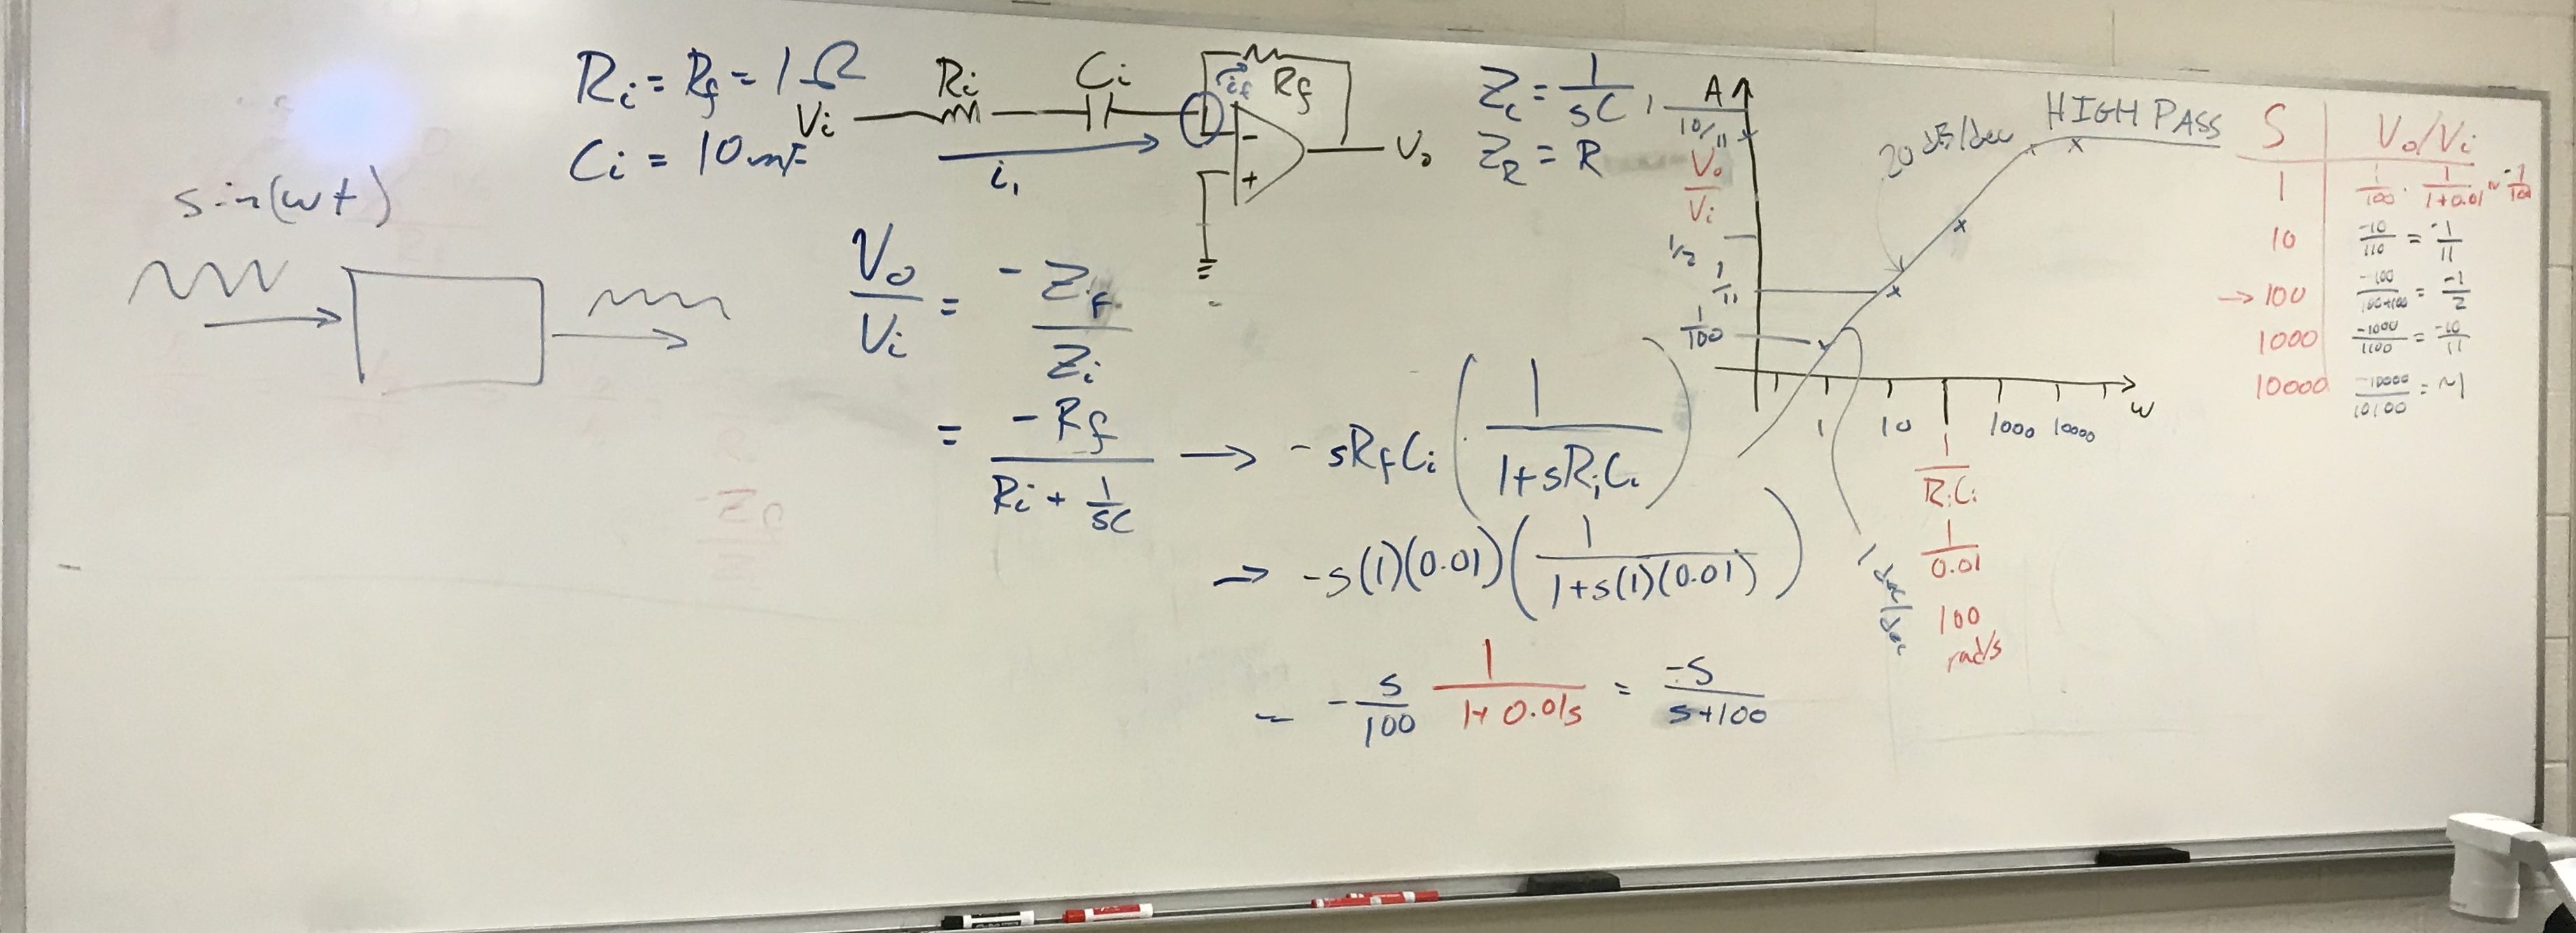 Ri = Rf = 1 Ω
Ci = 10mF
sin(wt)
Vi
Ri
Ci
if
Rf
i₁
-
+
Vo
Zc = 1/sC ,
ZR = R
Vo/Vi = -Zf/Zi
= -Rf/(Ri + 1/sC) → -sRfCi (1/(1+sRiCi))
→ -s(1)(0.01)(1/(1+s(1)(0.01)))
= -s/100 1/(1+0.01s) = -s/(s+100)
A
10/11
Vo/Vi
1/2
1/11
1/100
20 dB/dec
HIGH PASS
1 10 1000 10000
w
1/RiCi
1/0.01
100
rad/s
1 dec/dec
S Vo/Vi
1 1/100 · 1/(1+0.01) ~ -1/100
10 -10/110 = -1/11
→ 100 -100/(100+100) = -1/2
1000 -1000/1100 = -10/11
10000 -10000/10100 = ~1